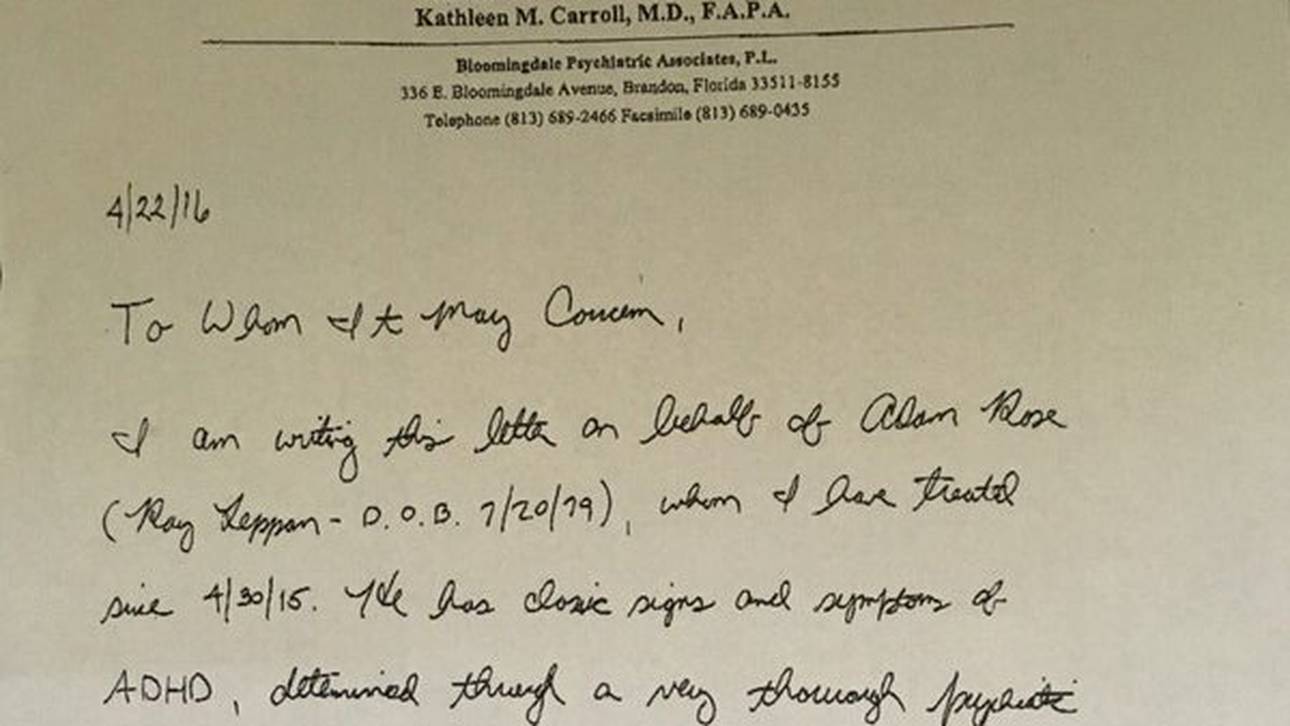 Kathleen M. Carroll, M.D., F.A.P.A.
Bloomingdale Psychiatric Associates, P.L.
336 E. Bloomingdale Avenue, Brandon, Florida 33511-8155
Telephone (813) 689-2466 Facsimile (813) 689-0435
4/22/16
To Whom It May Concern,
I am writing this letter on behalf of Adam Rose
(Ray Leppan - D.O.B. 7/20/79), whom I have treated
since 4/30/15. He has classic signs and symptoms of
ADHD, determined through a very thorough psychiatric